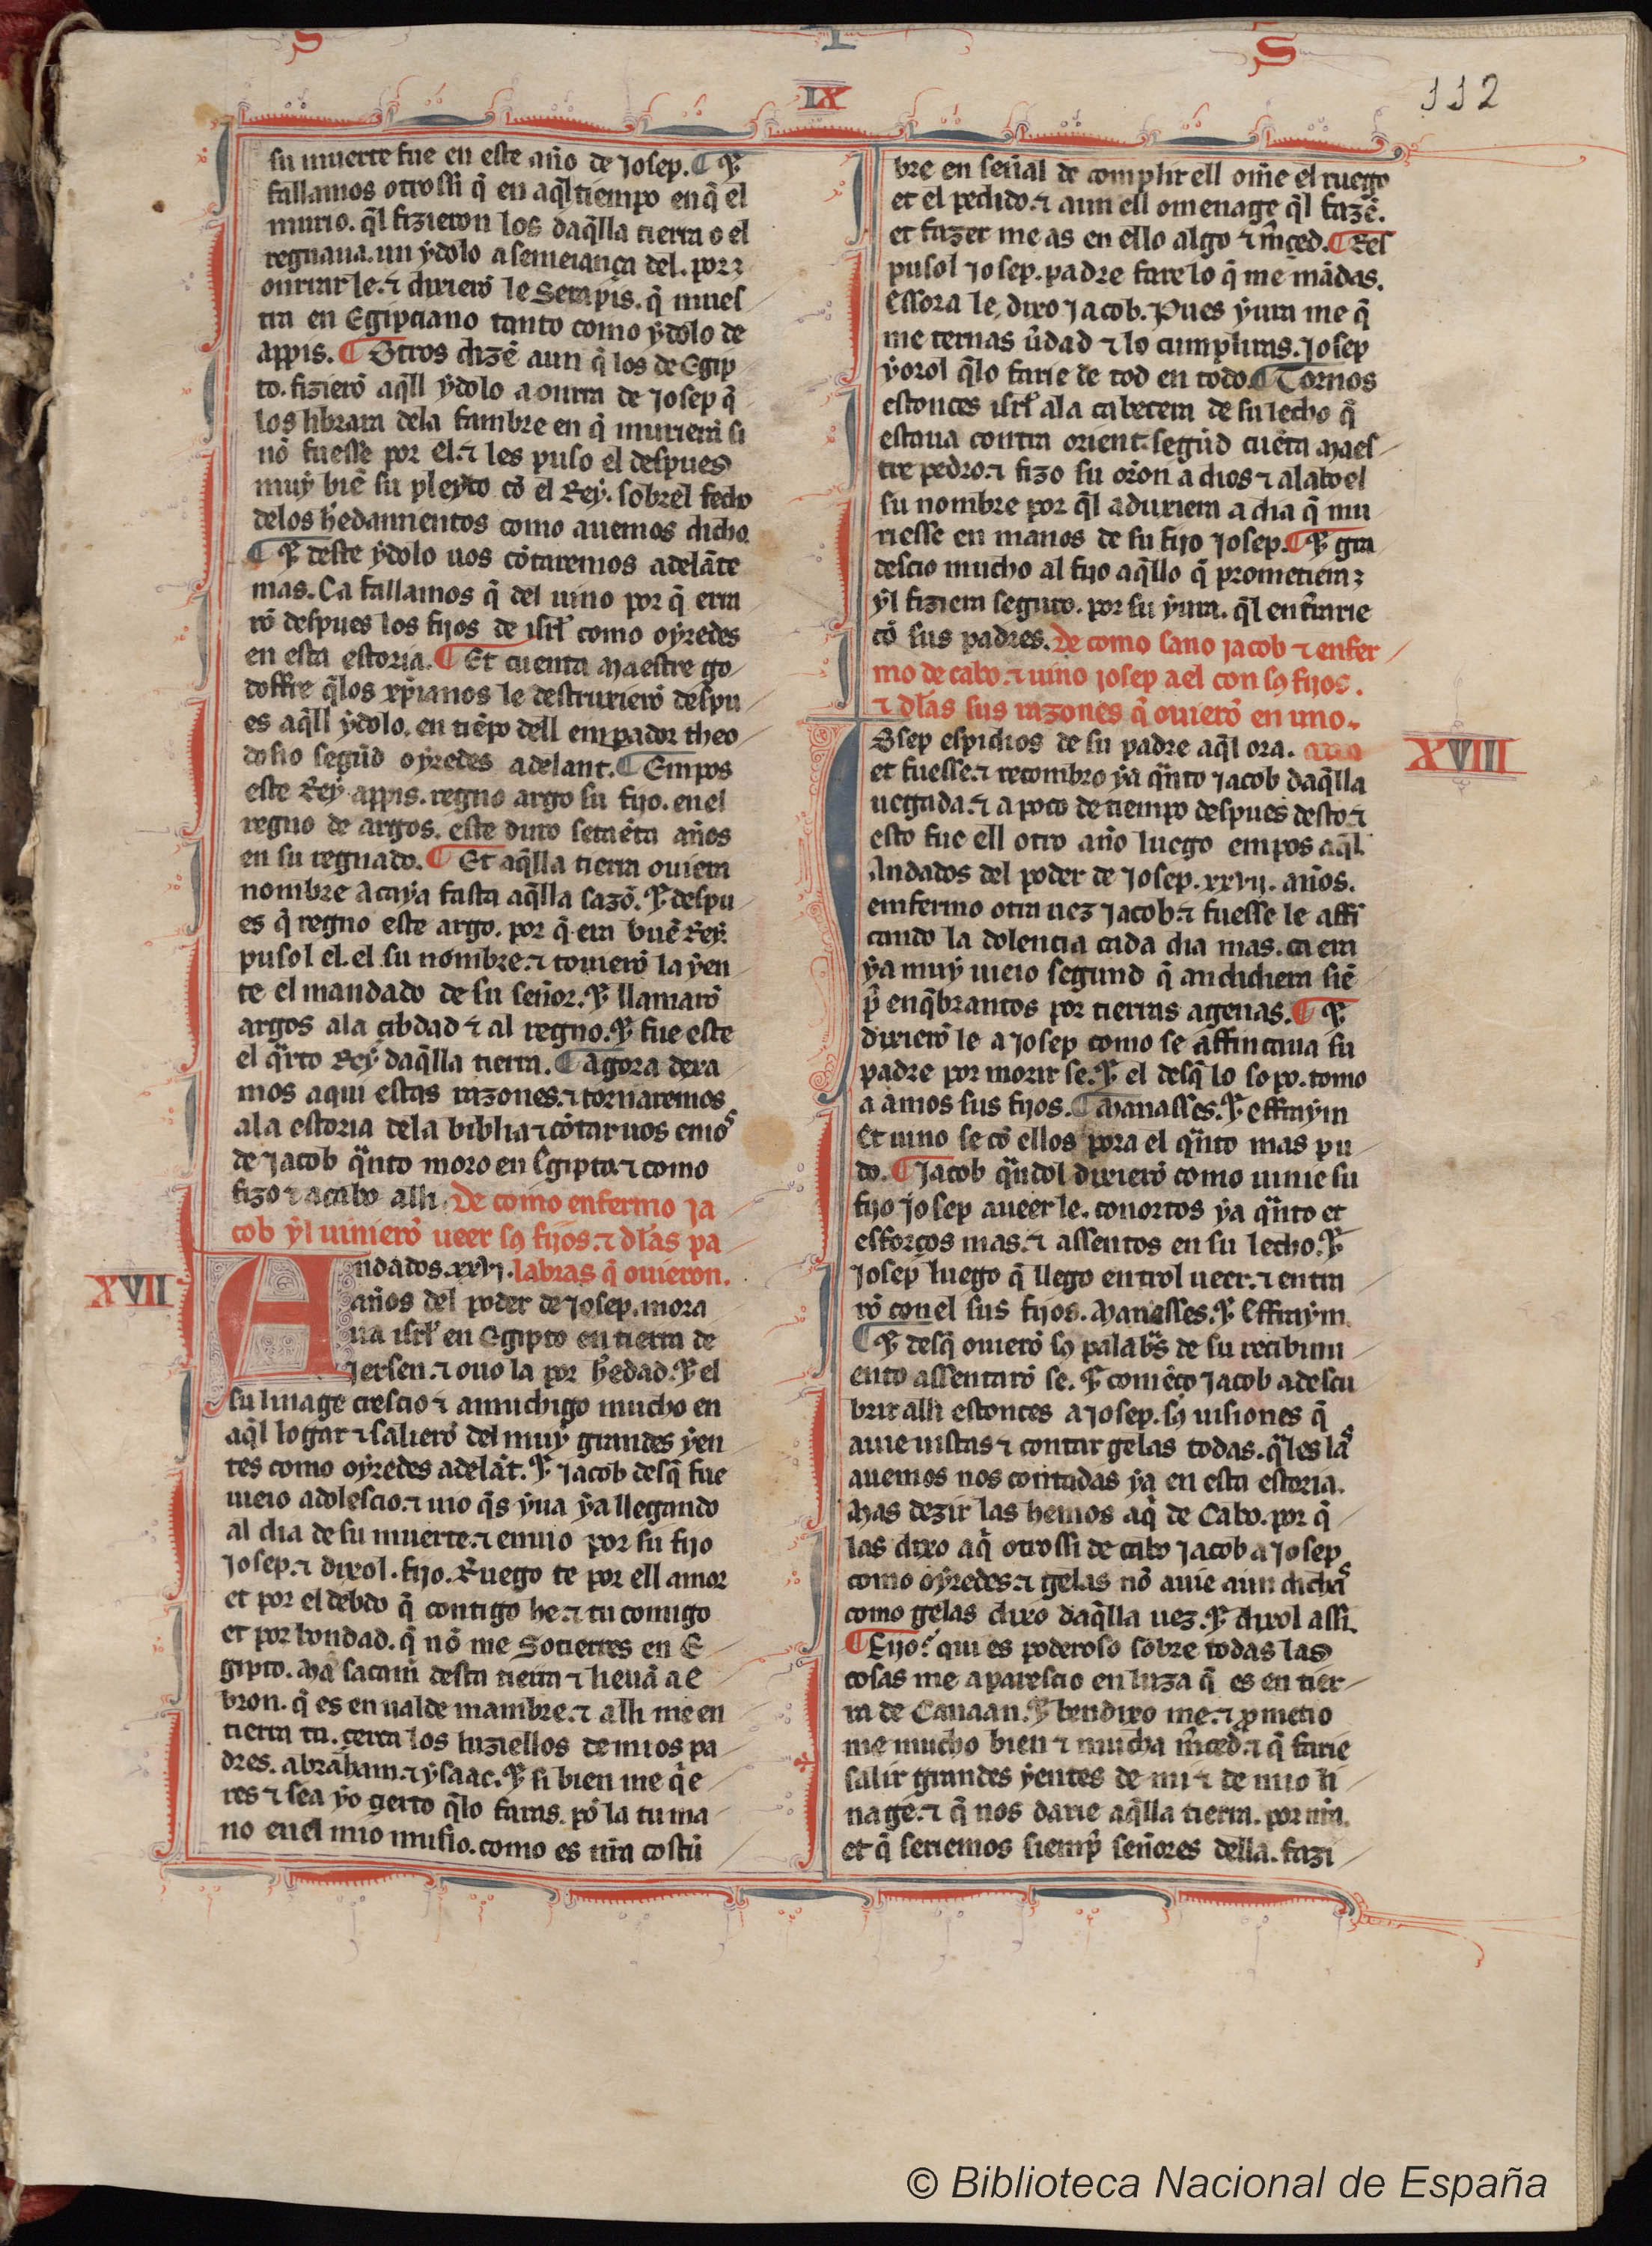 S I S
IX
112
su muerte fue en este año de Josep. ¶ ⁊
fallamos otrossi q̃ en aq̃l tiempo en q̃ el
murio. q̃l fizieron los daq̃lla tierra o el
regnaua. un ẏdolo a semeiança del. por
onrrar le. ⁊ dixierõ le Serapis. q̃ mues
tra en Egipciano tanto como ẏdolo de
appis. ¶ Otros dizẽ aun q̃ los de Egip
to. fizierõ aq̃ll ẏdolo a onrra de Josep q̃
los librara dela fambre en q̃ murierã si
nõ fuesse por el. ⁊ les puso el despues
muẏ biẽ su pleẏto cõ el Reẏ. sobrel fecho
delos h̃edamientos como auemos dicho.
¶ ⁊ deste ẏdolo uos cõtaremos adelãte
mas. Ca fallamos q̃ del uino por q̃ erra
rõ despues los fijos de isrl̃ como oẏredes
en esta estoria. ¶ Et cuenta Maestre go
doffre q̃los xp̃ianos le destruxierõ despu
es aq̃ll ẏdolo. en tiẽpo dell emp̱ador theo
dosio segũd oẏredes adelant. ¶ Empos
este Reẏ appis. regno argo su fijo. en el
regno de argos. este duro setaẽta años
en su regnado. ¶ Et aq̃lla tierra ouiera
nombre Acaẏa fasta aq̃lla sazõ. ⁊ despu
es q̃ regno este argo. por q̃ era buẽ Reẏ.
pusol el. el su nombre. ⁊ touierõ la ẏen
te el mandado de su señor. ⁊ llamarõ
argos ala cibdad ⁊ al regno. ⁊ fue este
el q̃rto Reẏ daq̃lla tierra. ¶ Agora dexa
mos aqui estas razones. ⁊ tornaremos
ala estoria dela biblia ⁊ cõtar uos emos
de Jacob q̃nto moro en Egipto. ⁊ como
fizo ⁊ acabo alli. De como enfermo Ja
cob ẏl uinierõ ueer sꝯ fijos. ⁊ dl̃as pa
XVII
Andados. xxvj. labras q̃ ouieron.
años del poder de Josep. mora
ua isrl̃ en Egipto en tierra de
Jersen. ⁊ ouo la por h̃edad. ⁊ el
su linage crescio ⁊ amuchigo mucho en
aq̃l logar ⁊ salierõ del muẏ grandes ẏen
tes como oẏredes adelãt. ⁊ Jacob desq̃ fue
uieio adolescio. ⁊ uio q̃s ẏua ẏa llegando
al dia de su muerte. ⁊ enuio por su fijo
Josep. ⁊ dixol. fijo. Ruego te por ell amor
et por el debdo q̃ contigo he. ⁊ tu comigo
et por bondad. q̃ nõ me Sotierres en E
gipto. Mas sacam desta tierra ⁊ lieuã a e
bron. q̃ es en ualde mambre. ⁊ alli me en
tierra tu. cerca los luziellos de mios pa
dres. abrãham. ⁊ ẏsaac. ⁊ si bien me q̃e
res ⁊ sea ẏo cierto q̃lo faras. põ la tu ma
no en el mio muslo. como es nr̃a costũ
bre en señal de complir ell om̃e el ruego
et el pedido. ⁊ aun ell omenage q̃l fazẽ.
et fazer me as en ello algo ⁊ m̃ced. ¶ Res
pusol Josep. padre fare lo q̃ me mãdas.
Essora le dixo Jacob. Pues ẏura me q̃
me ternas ũdad ⁊ lo cumpliras. Josep
ẏurol q̃lo farie de tod en todo. ¶ Tornos
estonces isrl̃ ala cabecera de su lecho q̃
estaua contra orient. segũd cuẽta Maes
tre pedro. ⁊ fizo su orõn a dios ⁊ alabo el
su nombre por q̃l aduxiera a dia q̃ mu
riesse en manos de su fijo Josep. ¶ ⁊ gra
descio mucho al fijo aq̃llo q̃ prometiera ⁊
ẏl fiziera seguro. por su ẏura. q̃l enterrarie
cõ sus padres. De como sano Jacob ⁊ enfer
mo de cabo. ⁊ uino Josep a el con sꝯ fijos.
⁊ dl̃as sus razones q̃ ouierõ en uno.
XVIII
Josep espidios de su padre aq̃l ora.
et fuesse. ⁊ recombro ẏa q̃nto Jacob daq̃lla
uegada. ⁊ a poco de tiempo despues desto. ⁊
esto fue ell otro año luego empos aq̃l.
Andados del poder de Josep. xxvij. años.
enfermo otra uez Jacob. ⁊ fuesse le affi
cando la dolencia cada dia mas. ca era
ẏa muẏ uieio segund q̃ andidiera siẽ
p̃ enq̃brantos por tierras agenas. ¶ ⁊
dixierõ le a Josep como se affincaua su
padre por morir se. ⁊ el desq̃ lo sopo. tomo
a amos sus fijos. ¶ Manasses. ⁊ effraẏm
Et uino se cõ ellos pora el q̃nto mas pu
do. ¶ Jacob q̃ndol dixierõ como uinie su
fijo Josep aueer le. conortos ẏa q̃nto et
esforços mas. ⁊ assentos en su lecho. ⁊
Josep luego q̃ llego entrol ueer. ⁊ entra
rõ con el sus fijos. Manasses. ⁊ Effraẏm.
¶ ⁊ desq̃ ouierõ sꝯ palabras de su recibimi
ento assentarõ se. ⁊ comẽço Jacob a descu
brir alli estonces a Josep. sꝯ uisiones q̃
auie uistas ⁊ contar gelas todas. q̃les las
auemos nos contadas ẏa en esta estoria.
Mas dezir las hemos aq̃ de Cabo. por q̃
las dixo aq̃ otrossi de cabo Jacob a Josep
como oẏredes. ⁊ gelas nõ auie aun dichas
como gelas dixo daq̃lla uez. ⁊ dixol assi.
¶ Fijo. qui es poderoso sobre todas las
cosas me aparescio en luza q̃ es en tier
ra de Canaan. ⁊ bendixo me. ⁊ ꝓmetio
me mucho bien ⁊ mucha m̃ced. ⁊ q̃ farie
salir grandes ẏentes de mi ⁊ de mio li
nage. ⁊ q̃ nos darie aq̃lla tierra. por nr̃a.
et q̃ seriemos siemp̃ señores della. fazi
© Biblioteca Nacional de España